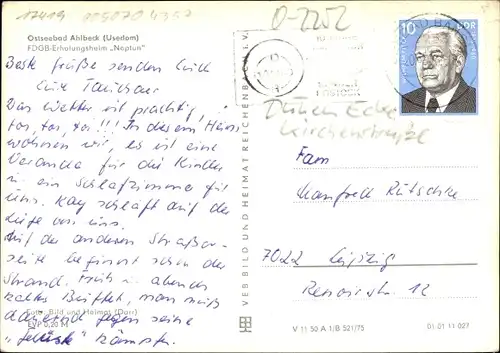 17419 005070 4357
D-2252
Ostseebad Ahlbeck (Usedom)
FDGB-Erholungsheim „Neptun"
Beste Grüße senden Euch
Eure
Das Wetter ist prächtig,
toi, toi, toi!!! In diesem Heim
wohnen wir, es ist eine
Veranda für die Kinder
u. ein Schlafzimmer für
uns. Kay schläft auf der
Liege bei uns.
Auf der anderen Straßen-
seite beginnt schon der
Strand. Früh u. abends
kaltes Büffet, man muß
dauernd gegen seine
kämpfen.
Foto: Bild und Heimat (Darr)
EVP 0,20 M
VEB BILD UND HEIMAT REICHENBACH I. V.
10
DDR
Ecke
Kirchenstraße
Fam
Manfred Rütschke
7022 Leipzig
Renoirstr. 12
V 11 50 A 1/B 521/75
01 01 13 027